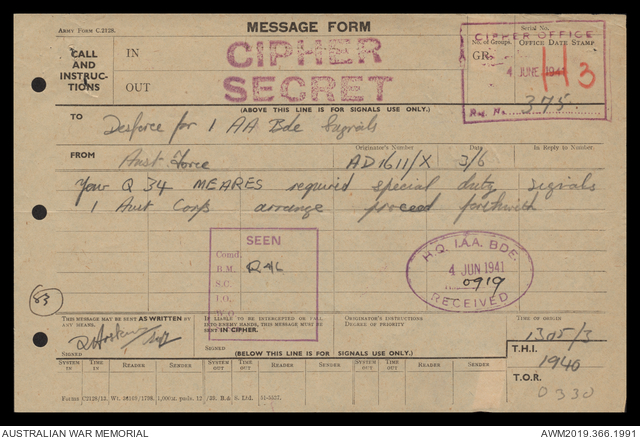 ARMY FORM C.2128.
MESSAGE FORM
Serial No.
CALL AND INSTRUC-TIONS
IN
OUT
CIPHER
SECRET
No. of Groups.
OFFICE DATE STAMP
CIPHER OFFICE
GR.
4 JUNE 1941
H 3
Reg. No. 375.
(ABOVE THIS LINE IS FOR SIGNALS USE ONLY.)
TO
Desforce for 1 AA Bde Signals
FROM
Originator's Number
Date
In Reply to Number
Aust Force
AD1611/X
3/6
Your Q 34 MEARES required special duty signals
1 Aust Corps arrange proceed forthwith
SEEN
Comd.
B.M.
S.C.
I.O.
H.Q. 1.A.A. BDE.
4 JUN 1941
0919
RECEIVED
83
THIS MESSAGE MAY BE SENT AS WRITTEN BY ANY MEANS.
IF LIABLE TO BE INTERCEPTED OR FALL INTO ENEMY HANDS, THIS MESSAGE MUST BE SENT IN CIPHER.
ORIGINATOR'S INSTRUCTIONS
DEGREE OF PRIORITY
TIME OF ORIGIN
1305/3
SIGNED
SIGNED
(BELOW THIS LINE IS FOR SIGNALS USE ONLY.)
T.H.I.
1940
SYSTEM IN
TIME IN
READER
SENDER
SYSTEM OUT
TIME OUT
READER
SENDER
SYSTEM OUT
TIME OUT
READER
SENDER
T.O.R.
0330
AUSTRALIAN WAR MEMORIAL
AWM2019.366.1991